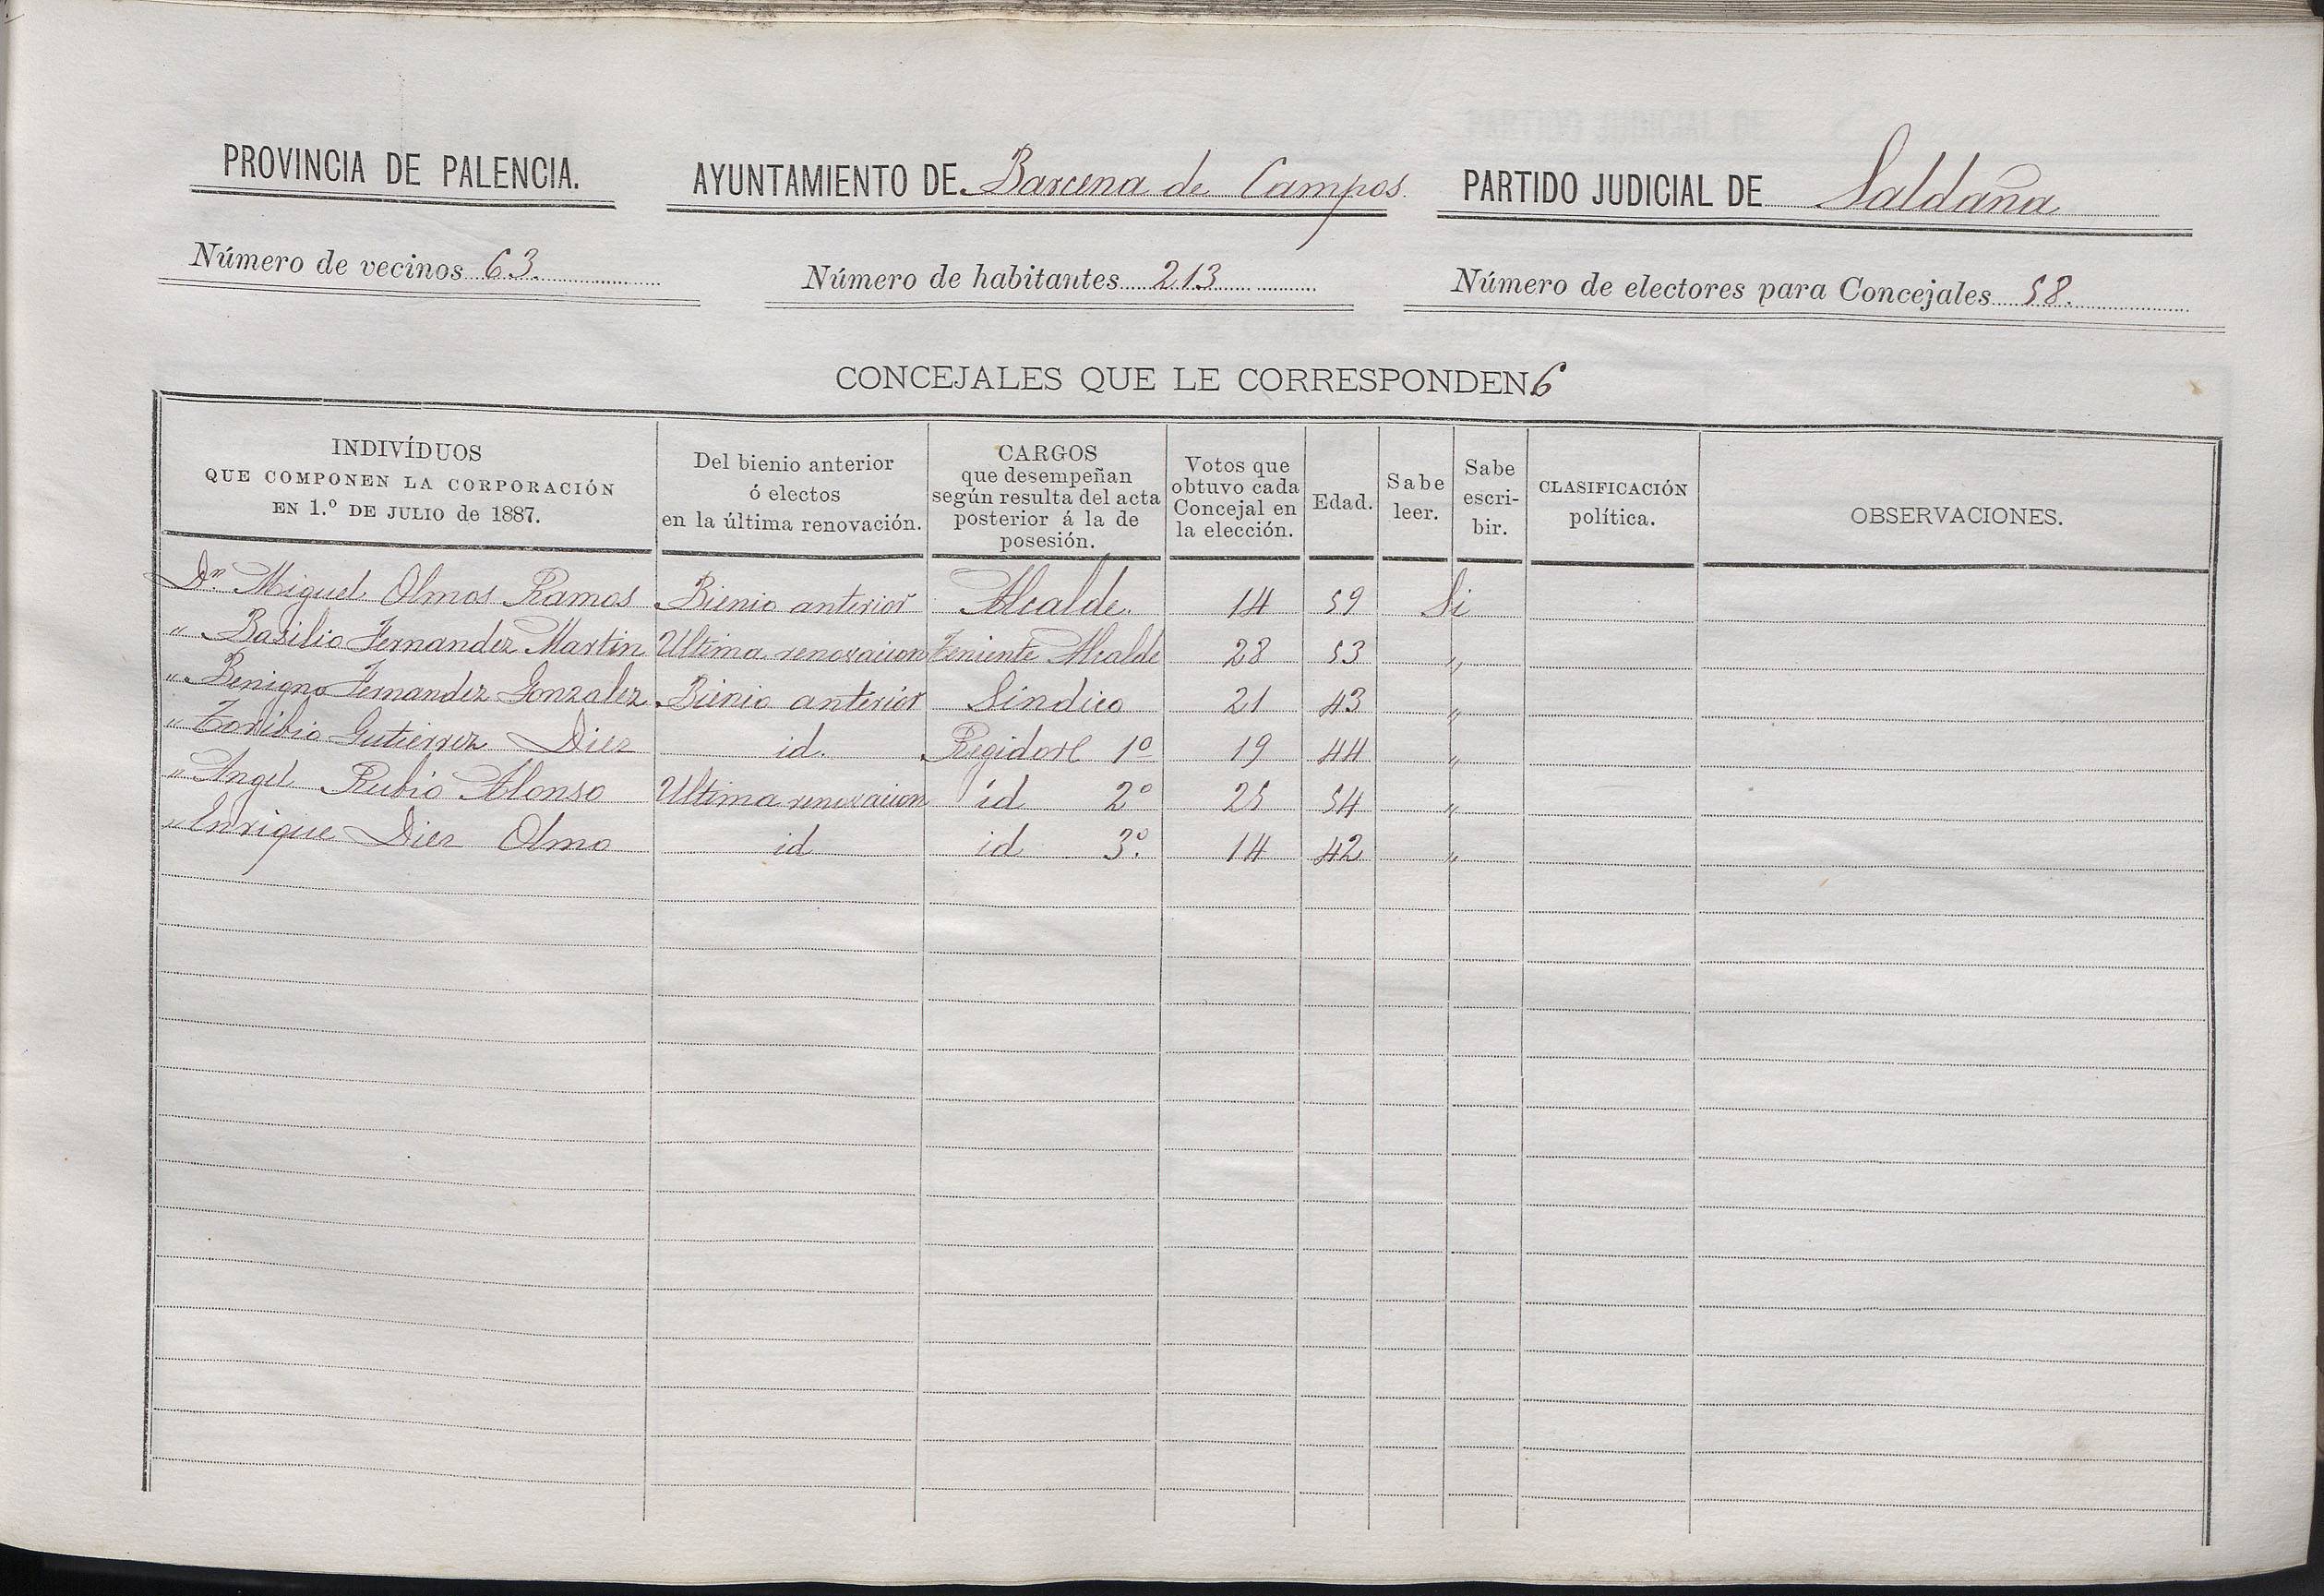 PROVINCIA DE PALENCIA. AYUNTAMIENTO DE Barcena de Campos. PARTIDO JUDICIAL DE Saldaña
Número de vecinos 63. Número de habitantes 213 Número de electores para Concejales 58.
CONCEJALES QUE LE CORRESPONDEN 6
INDIVÍDUOS
QUE COMPONEN LA CORPORACIÓN
EN 1.º DE JULIO de 1887.
Del bienio anterior
ó electos
en la última renovación.
CARGOS
que desempeñan
según resulta del acta
posterior á la de
posesión.
Votos que
obtuvo cada
Concejal en
la elección.
Edad.
Sabe
leer.
Sabe
escri-
bir.
CLASIFICACIÓN
política.
OBSERVACIONES.
Dn. Miguel Olmos Ramos Bienio anterior Alcalde. 14 59 Si
" Basilio Fernandez Martin Ultima renovacion Teniente Alcalde 28 53 "
" Benigno Fernandez Gonzalez Bienio anterior Síndico 21 43 "
" Toribio Gutierrez Diez id. Regidore 1º 19 44 "
" Angel Rubio Alonso Ultima renovacion id 2º 25 54 "
" Enrique Diez Olmo id id 3º. 14 42 "